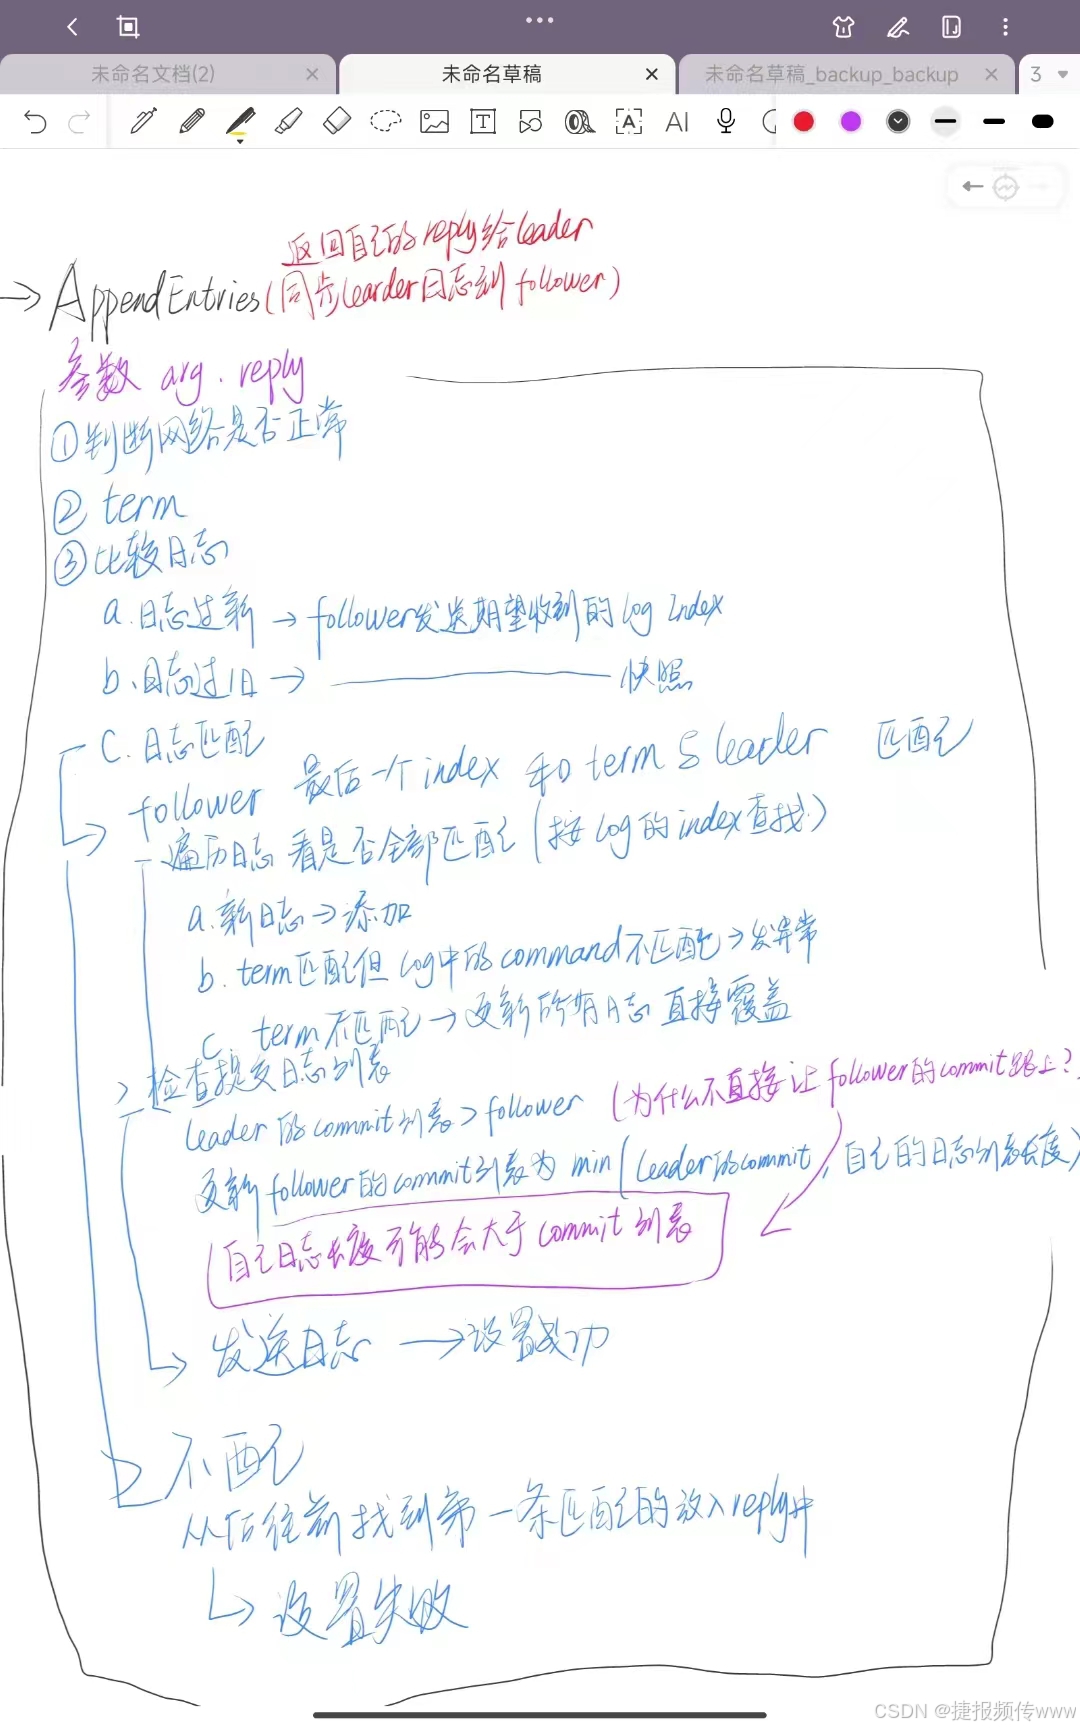 未命名文档(2)
未命名草稿
未命名草稿_backup_backup
3
返回自己的reply给leader
AppendEntries(同步learder日志到 follower)
参数 arg . reply
①判断网络是否正常
② term
③比较日志
a.日志过新 → follower发送期望收到的log Index
b.日志过旧 → 快照
C.日志匹配
follower 最后一个index 和term与leader 匹配
遍历日志 看是否全部匹配(按log的index查找)
a.新日志→添加
b. term匹配但 log中的command不匹配→发异常
c. term不匹配→更新所有日志 直接覆盖
检查提交日志列表
leader 的commit列表>follower (为什么不直接让follower的commit跟上?
更新follower的commit列表为 min(leader的commit, 自己的日志列表长度)
自己日志长度可能会大于commit列表
发送日志 →设置成功
不匹配
从后往前找到第一条匹配的放入reply中
设置失败
CSDN @捷报频传www